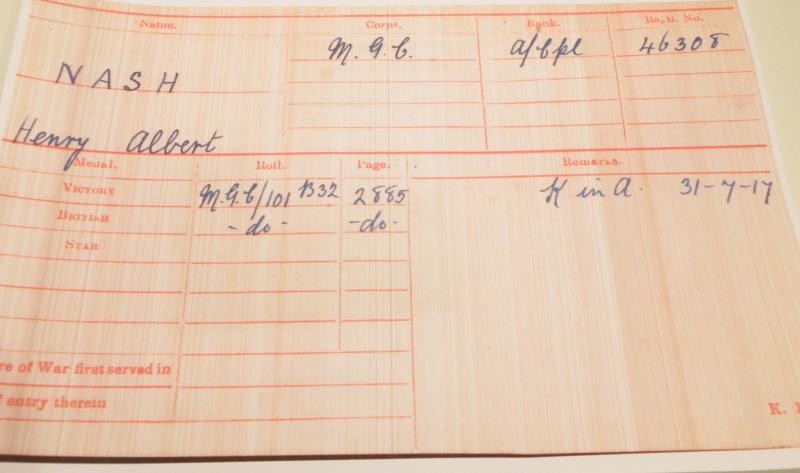 Name. Corps. Rank. Regtl. No.
NASH M.G.C. A/Cpl 46308
Henry Albert
Medal. Roll. Page. Remarks.
VICTORY M.G.C/101 B32 2885 K in A. 31-7-17
BRITISH - do - -do-
STAR
re of War first served in
entry therein
K.